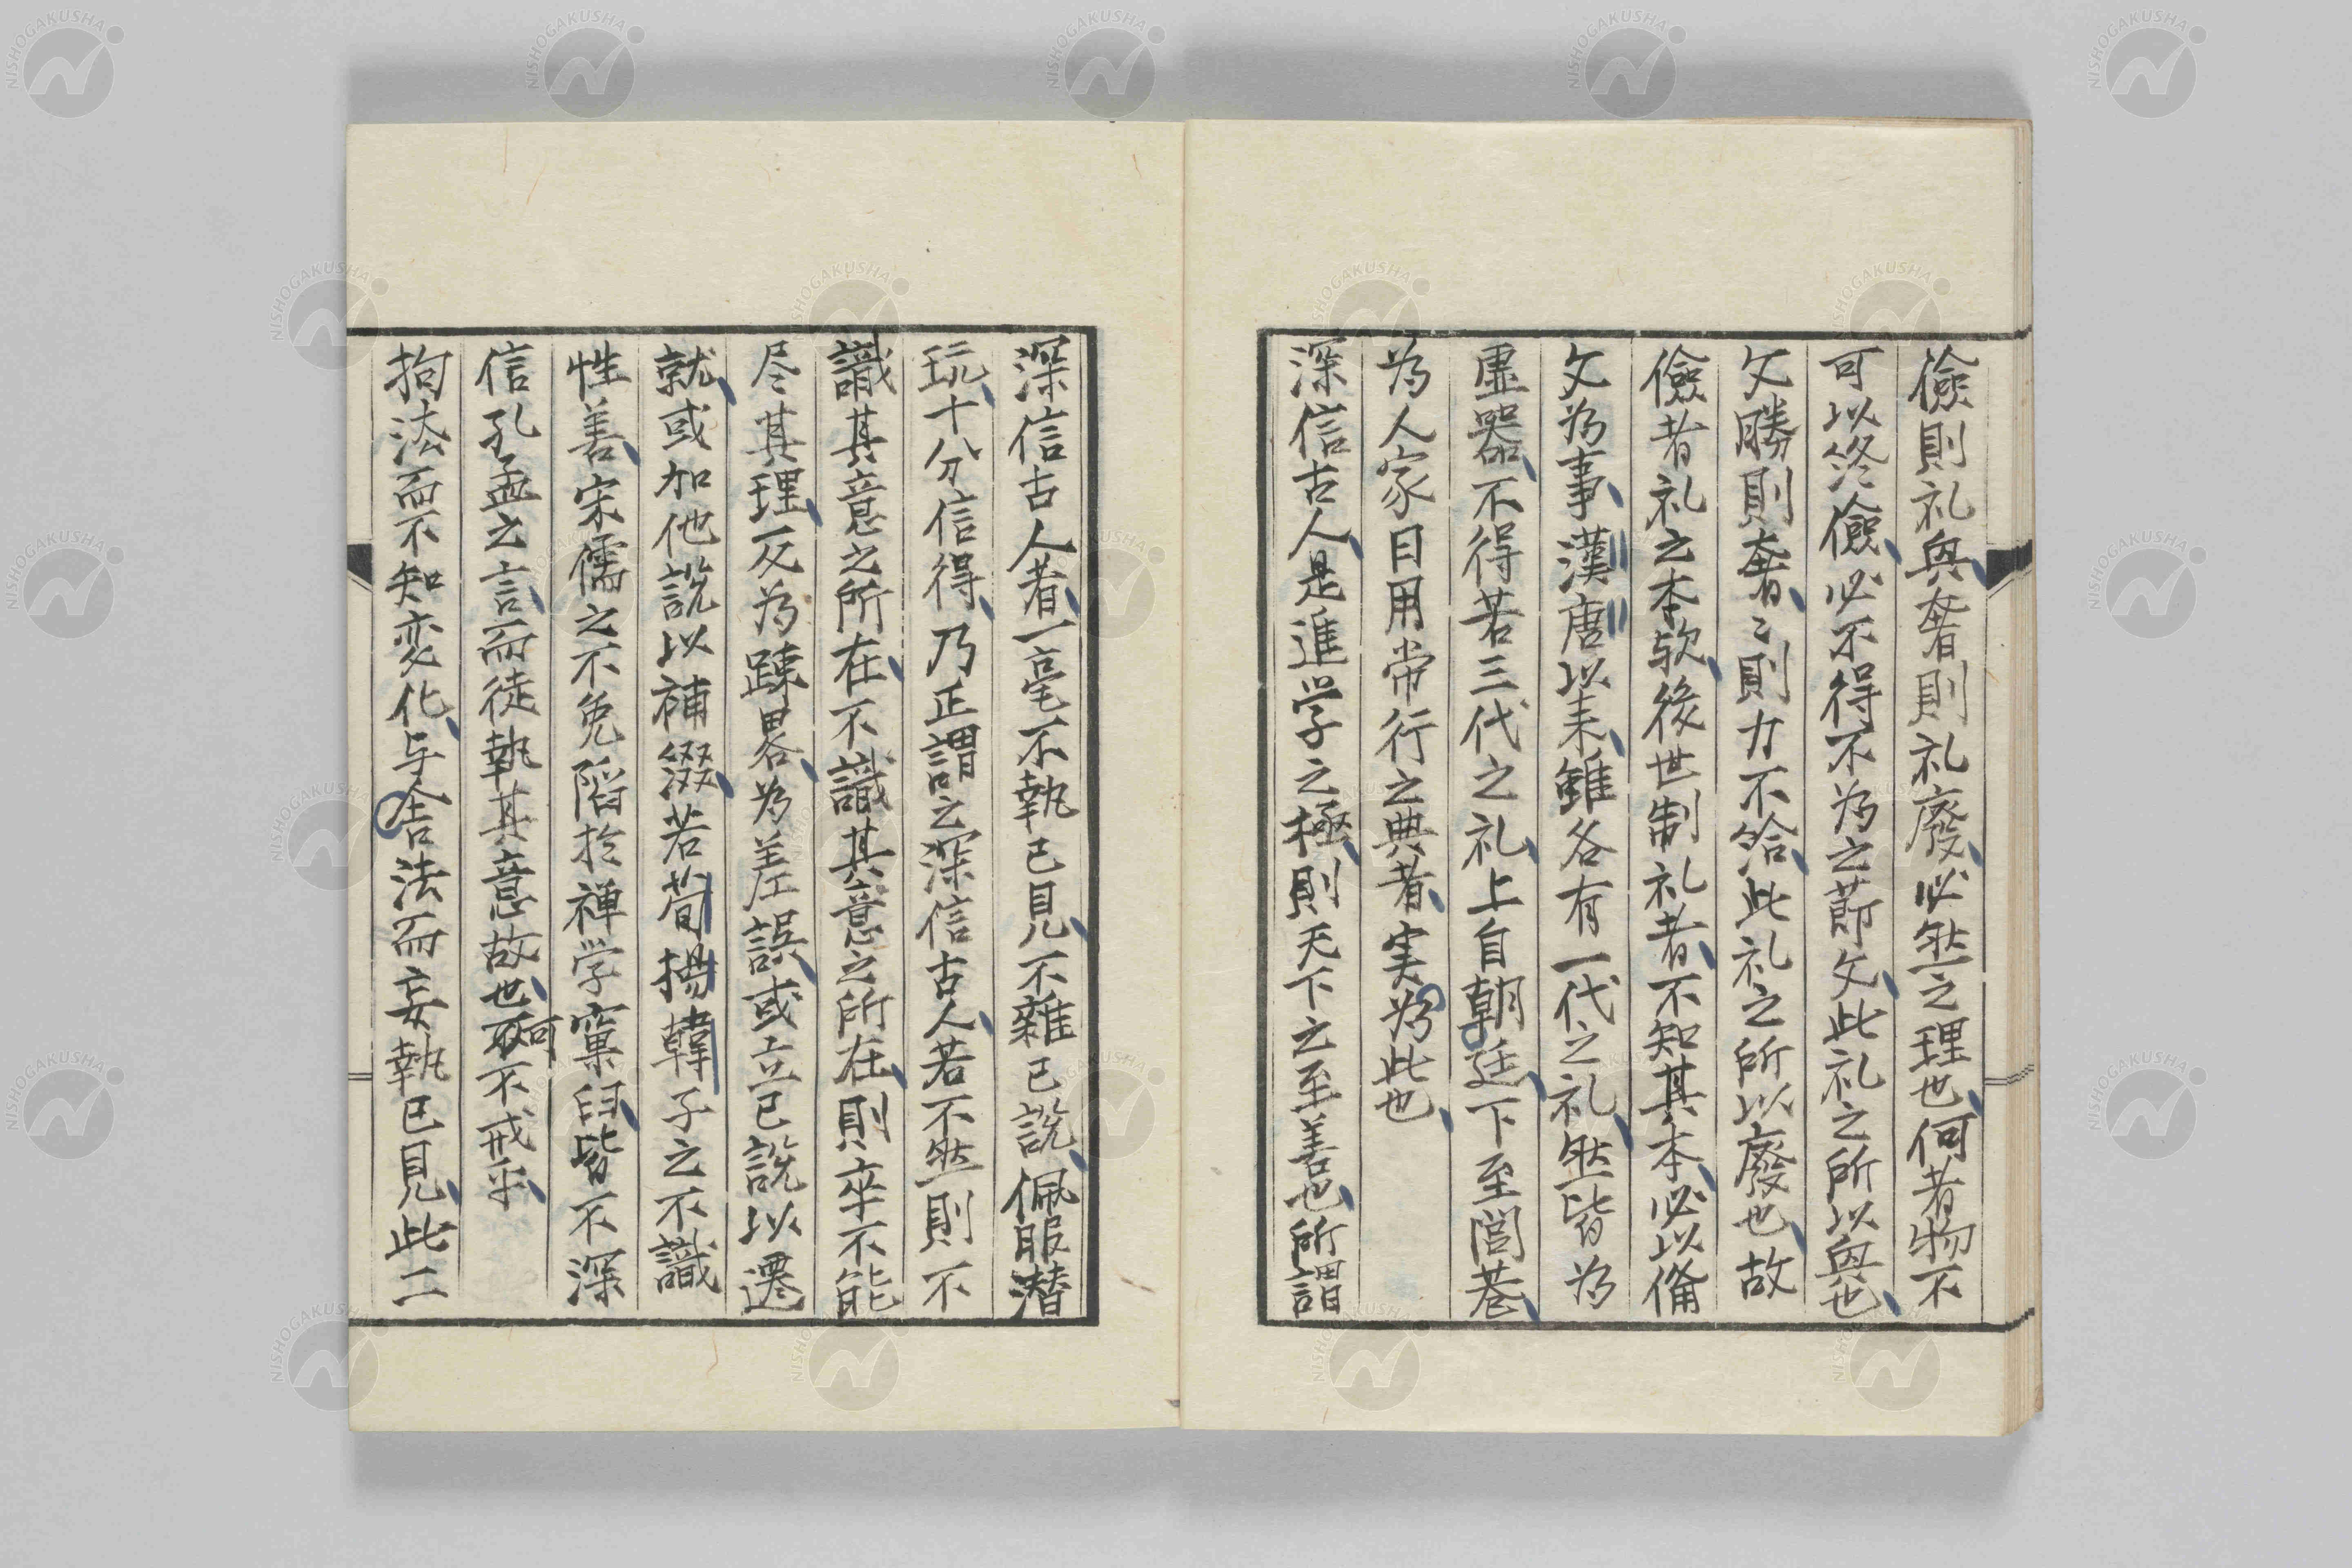 儉則礼興奢則礼廢必然之理也何者物不
可以終儉必不得不為之莭文此礼之所以興也
文勝則奢〻則力不給此礼之所以廢也故
儉者礼之本欤後世制礼者不知其本必以俻
文為事漢唐以来雖各有一代之礼然皆為
虚器不得若三代之礼上自朝廷下至閭巷
為人家日用常行之典者実為此也
深信古人是進学之極則天下之至善也所謂
深信古人者一毫不執己見不雜己説佩服潜
玩十分信得乃正謂之深信古人若不然則不
識其意之所在不識其意之所在則卒不能
尽其理反為踈畧為差誤或立己説以遷
就或加他説以補綴若荀揚韓子之不識
性善宋儒之不免陷於禅学窠臼皆不深
信孔孟之言而徒執其意故也可不戒乎
拘法而不知変化与舎法而妄執己見此二
NISHOGAKUSHA